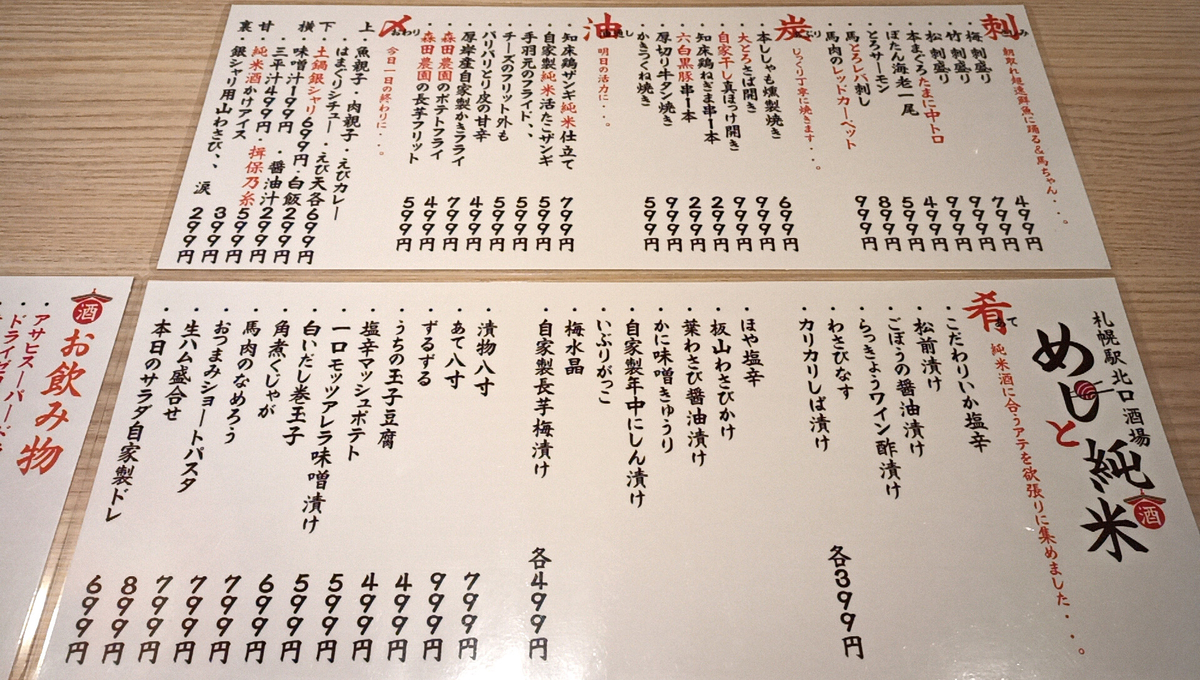 刺
朝取れ超速鮮魚に踊る&馬ちゃん・・・。
・梅刺盛り 499円
・竹刺盛り 799円
・松刺盛り 999円
・本まぐろたまに中トロ 999円
・ぼたん海老一尾 499円
・とろサーモン 599円
・馬とろレバ刺し 899円
・馬肉のレッドカーペット 999円
炭
じっくり丁寧に焼きます・・・。
・本ししゃも燻製焼き 699円
・大とろさば開き 999円
・自家干し真ほっけ開き 999円
・知床鶏ねぎま串1本 299円
・六白黒豚串1本 299円
・厚切り牛タン焼き 999円
・かきつくね焼き 599円
油
明日の活力に・・・。
・知床鶏ザンギ純米仕立て 799円
・自家製純米活たこザンギ 599円
・手羽元のフライド、、 599円
・チーズのフリット外も 599円
・パリパリとり皮の甘辛 499円
・厚岸産自家製かきフライ 799円
・森田農園のポテトフライ 499円
・森田農園の長芋フリット 599円
〆
おわり
今日一日の終わりに・・・。
上 ・魚親子・肉親子・えびカレー
・はまぐりシチュー・えび天各699円
下 ・土鍋銀シャリ699円・白飯299円
横 ・味噌汁199円・醤油汁299円
・三平汁499円・揖保乃糸599円
甘 ・純米酒かけアイス 399円
裏 ・銀シャリ用山わさび、、涙 299円
札幌駅北口酒場
めしと純米
酒
肴
あて
純米酒に合うアテを欲張りに集めました・・・。
・こだわりいか塩辛
・松前漬け
・ごぼうの醤油漬け
・らっきょうワイン酢漬け
・わさびなす
・カリカリしば漬け
各399円
・ほや塩辛
・板山わさびかけ
・葉わさび醤油漬け
・かに味噌きゅうり
・自家製年中にしん漬け
・いぶりがっこ
・梅水晶
・自家製長芋梅漬け
各499円
・漬物八寸 799円
・あて八寸 999円
・ずるずる 499円
・うちの玉子豆腐 499円
・塩辛マッシュポテト 599円
・一口モッツアレラ味噌漬け 599円
・白いだし巻玉子 699円
・角煮くじゃが 799円
・馬肉のなめろう 799円
・おつまみショートパスタ 799円
・生ハム盛合せ 899円
・本日のサラダ自家製ドレ 699円
酒
お飲み物
・アサヒスーパー